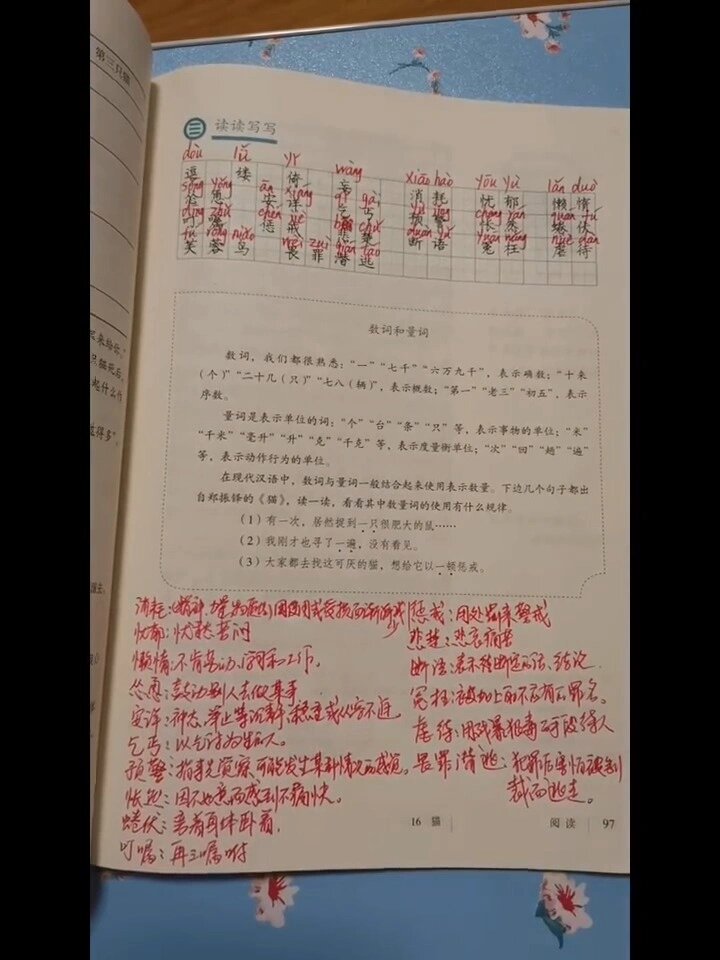 第三只猫
三 读读写写
dòu lǚ yǐ wàng xiāo hào yōu yù lǎn duò
逗 缕 倚 妄 消耗 忧郁 懒惰
sǒng yǒng ān xiáng qǐ gài
怂恿 安详 乞丐
dīng zhǔ chéng jiè chàng rán quán fú
叮嘱 惩戒 怅然 蜷伏
fú róng niǎo wèi zuì qián táo duàn yǔ yuān wǎng nüè dài
芙蓉鸟 畏罪潜逃 断语 冤枉 虐待
数词和量词
数词，我们都很熟悉：“一”“七千”“六万九千”，表示确数；“十来
（个）”“二十几（只）”“七八（辆）”，表示概数；“第一”“老三”“初五”，表示
序数。
量词是表示单位的词：“个”“台”“条”“只”等，表示事物的单位；“米”
“千米”“毫升”“升”“克”“千克”等，表示度量衡单位；“次”“回”“趟”“遍”
等，表示动作行为的单位。
在现代汉语中，数词与量词一般结合起来使用表示数量。下边几个句子都出
自郑振铎的《猫》，读一读，看看其中数量词的使用有什么规律。
（1）有一次，居然捉到一只很肥大的鼠……
（2）我刚才也寻了一遍，没有看见。
（3）大家都去找这可厌的猫，想给它以一顿惩戒。
消耗：（精神、力量、物品）因使用或受损而渐渐减少
忧郁：忧愁苦闷
懒惰：不肯劳动、学习和工作。
怂恿：鼓动别人去做某事
安详：神态、举止等沉静、稳重或从容不迫。
乞丐：以乞讨为生的人。
预警：指事先觉察可能发生某种情况的感觉。
怅然：因不如意而感到不痛快。
蜷伏：弯着身体卧着。
叮嘱：再三嘱咐
惩戒：用处罚来警戒
悲楚：悲哀痛苦
冤枉：被加上的不应有的罪名。
虐待：用残暴狠毒的手段待人
畏罪潜逃：犯罪后害怕被制
裁而逃走。
16 猫
阅读 97